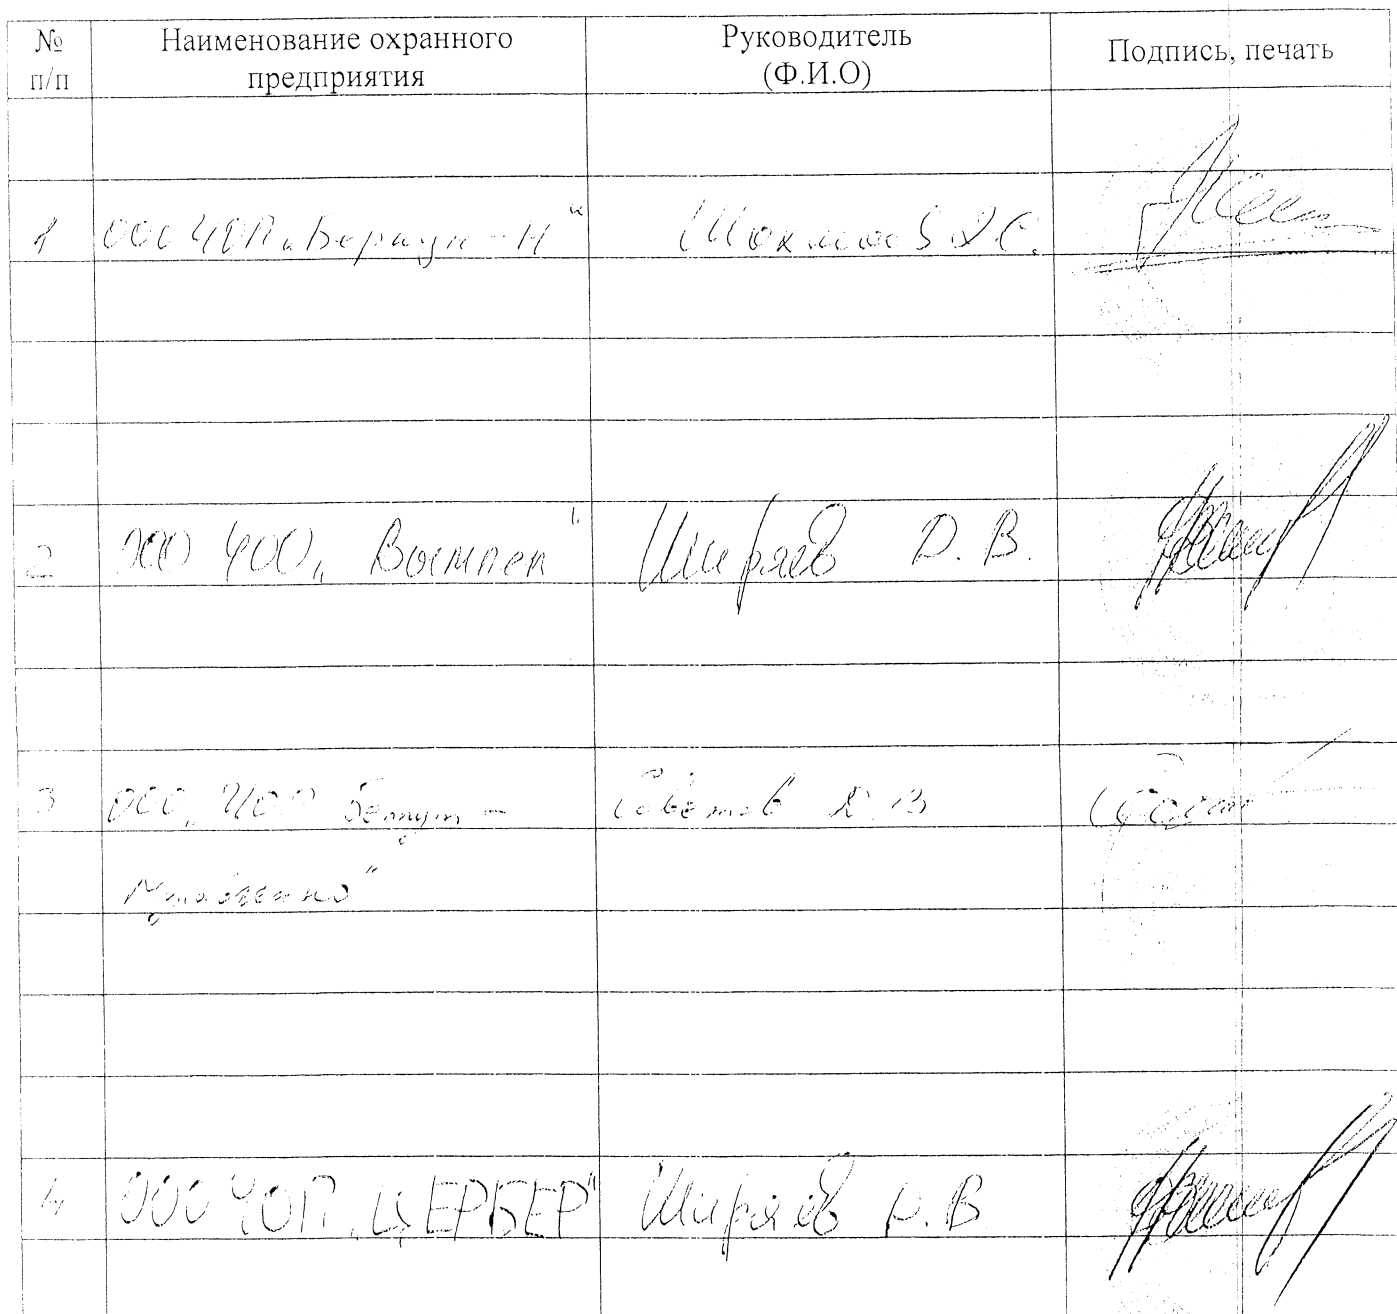 № п/п Наименование охранного предприятия Руководитель (Ф.И.О) Подпись, печать
1 ООО ЧОП „Беркут-Н“
2 ООО ЧОО „Вымпел" Ширяев Д. В.
3 ООО „ЧОП Беркут -
4 ООО ЧОП „ЦЕРБЕР" Ширяев Д. В